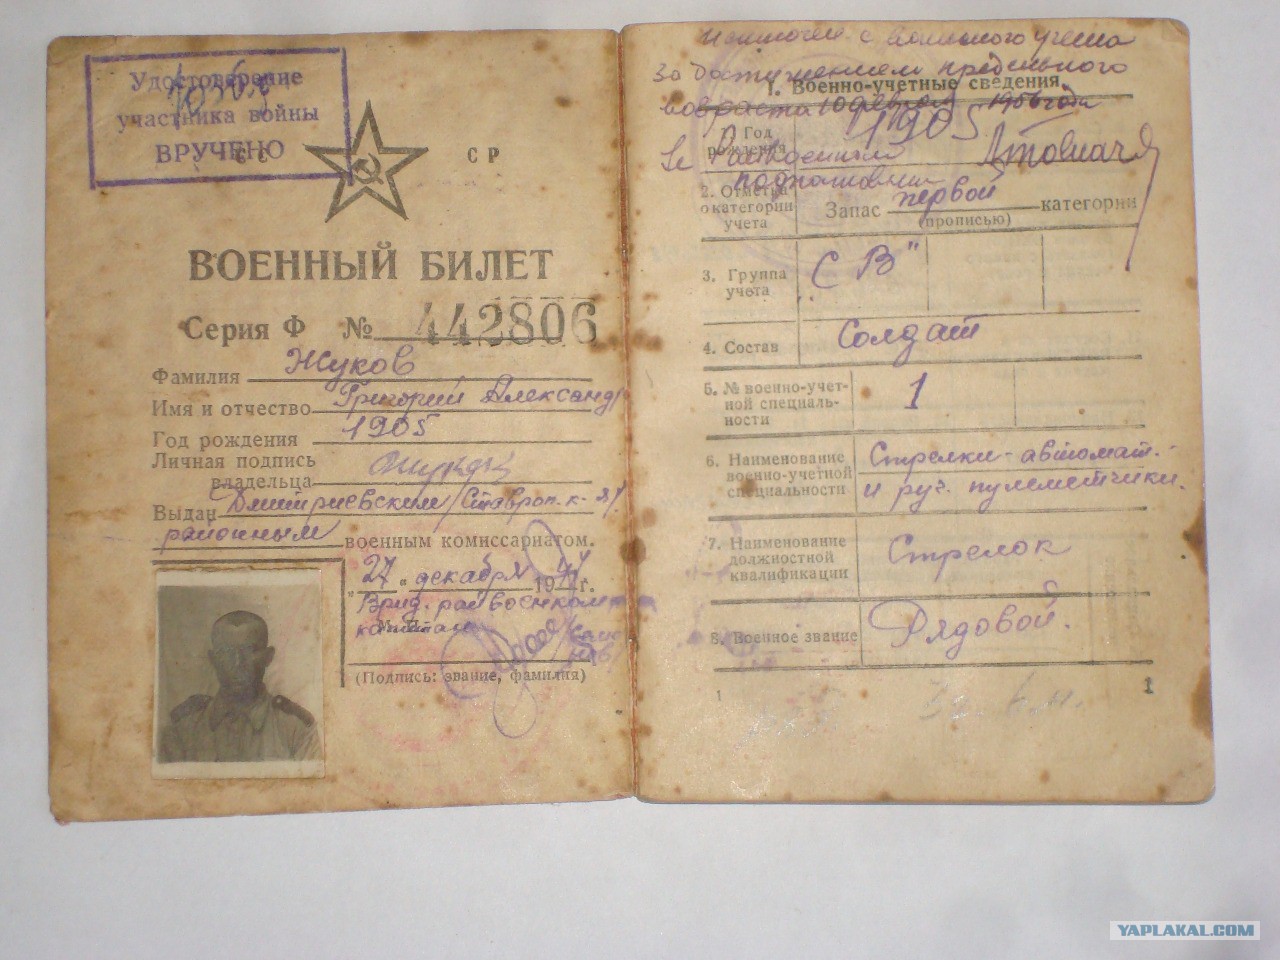 Удостоверение
участника войны
ВРУЧЕНО
СС СР
ВОЕННЫЙ БИЛЕТ
Серия Ф № 442806
Фамилия Жуков
Имя и отчество Григорий Александр
Год рождения 1905
Личная подпись
владельца
Выдан Дмитриевским /Ставроп. к-
районным военным комиссариатом.
"27" декабря 19 г.
Врид. райвоенкома
капитан
М. П.
(Подпись: звание, фамилия)
Исключен с воинского учета
за достижением предельного
возраста 10 февраля 1956 года
I. Военно-учетные сведения
1. Год
рождения
1905
подполковник
2. Отметка
о категории
учета
Запас первой категории
(прописью)
3. Группа
учета
СВ"
4. Состав
Солдат
5. № военно-учет-
ной специаль-
ности
1
6. Наименование
военно-учетной
специальности
Стрелки-автомат.-
и руч. пулеметчики.
7. Наименование
должностной
квалификации
Стрелок
8. Военное звание
Рядовой.
1
YAPLAKAL.COM